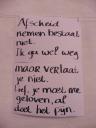 Afscheid
nemen bestaat
niet.
Ik ga wel weg
maar verlaat
je niet.
Lief, je moet me
geloven, al
doet het pijn.